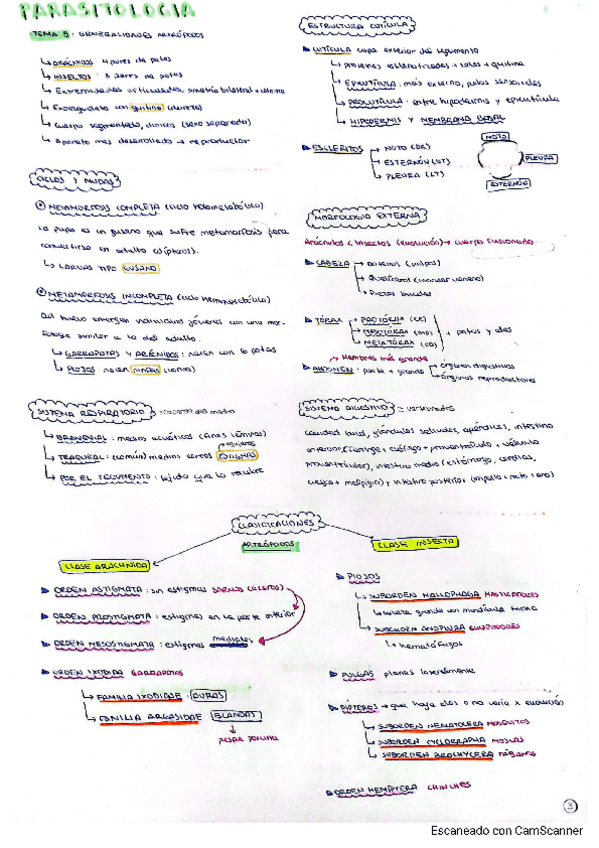 PARASITOLOGIA
TEMA 5: GENERALIDADES ARTRÓPODOS
ARÁCNIDOS 4 pares de patas
INSECTOS: 3 pares de patas
Extremidades articuladas, simetría bilateral +
Exoesqueleto con quitina (dureza)
Cuerpo segmentado, dioicos (sexo separado)
Aparato más desarrollado → reproductor
CICLOS Y MUDAS
METAMORFOSIS COMPLETA (ciclo holometabólico)
La pupa es un gusano que sufre metamorfosis para
convertirse en adulto (dípteros).
LARVAS TIPO GUSANO
METAMORFOSIS INCOMPLETA (ciclo hemimetabólico)
Del huevo emergen individuos jóvenes con una mor-
fología similar a la del adulto.
GARRAPATAS Y ARÁCNIDOS: nacen con 6 patas
PIOJOS nacen ninfas
SISTEMA RESPIRATORIO
BRANQUIAL: medios acuáticos
TRAQUEAL: (común) medios aéreos ESTIGMAS
POR EL TEGUMENTO: tejido que lo recubre
ESTRUCTURA CUTÍCULA
CUTÍCULA capa exterior del tegumento
proteínas + sales + quitina
EPICUTÍCULA: más externo, pelos sensoriales
PROCUTÍCULA: entre hipodermis y epicutícula
HIPODERMIS Y MEMBRANA BASAL
ESCLERITOS → NOTO (DR)
→ ESTERNÓN (VT)
→ PLEURA (LT)
NOTO
PLEURA
ESTERNÓN
MORFOLOGIA EXTERNA
Arácnidos (insectos (evolución) → cuerpo fusionado
CABEZA → antenas
→ Quelíceros (inocular veneno)
→ Piezas bucales
TÓRAX → PROTÓRAX (PR)
→ MESOTÓRAX (MD) + patas y alas
→ METATÓRAX
Hembras más grande
ABDOMEN: parte + grande → órganos digestivos
→ órganos reproductores
SISTEMA DIGESTIVO = vertebrados
Cavidad bucal, glándulas salivales, apéndices, intestino
anterior (faringe + esófago + proventrículo + válvula
proventricular), intestino medio (estómago,
ciegos + ) y intestino posterior (ámpula + recto + ano)
CLASIFICACIONES
ARTRÓPODOS
CLASE ARACHNIDA
CLASE INSECTA
ORDEN ASTIGMATA: sin estigmas SARNAS (ÁCAROS)
ORDEN PROSTIGMATA: estigmas en la parte anterior
ORDEN MESOSTIGMATA: estigmas mediales
ORDEN IXODIDA GARRAPATAS
FAMILIA IXODIDAE: DURAS
FAMILIA ARGASIDAE BLANDAS
PIOJOS
SUBORDEN MALLOPHAGA MASTICADORES
cabeza grande con mandíbula
SUBORDEN ANOPLURA CHUPADORES
hematófagos
PULGAS planas lateralmente
DÍPTEROS → que haya alas o no varía x evolución
SUBORDEN NEMATOCERA MOSQUITOS
SUBORDEN CYCLORAPHA MOSCAS
SUBORDEN BRACHYCERA TÁBANOS
ORDEN HEMIPTERA CHINCHES
3
Escaneado con CamScanner